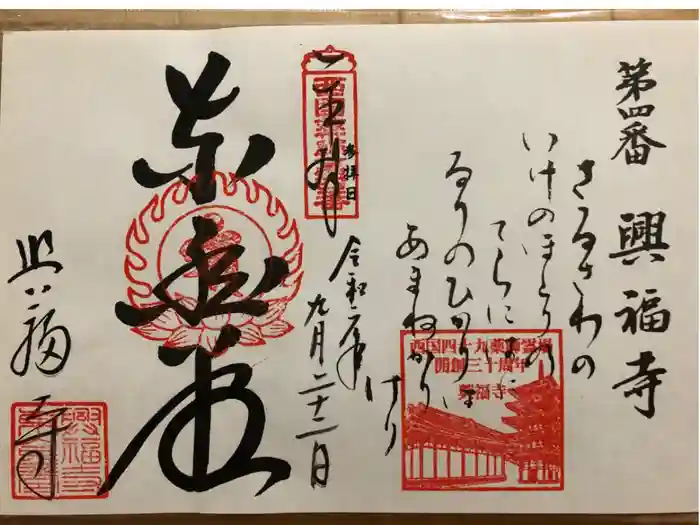 第四番 興福寺
さるさわの
いけのほとりの
てらに
るりのひかりは
あまねかり
けり
西国四十九薬師霊場
開創三十周年
興福寺
参拝日
令和二年
九月二十二日
東金堂
興福寺